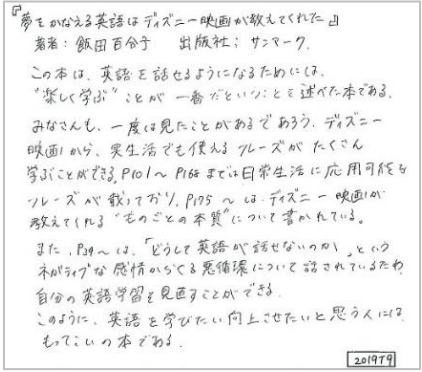 『夢をかなえる英語はディズニー映画が教えてくれた』
著者：飯田百合子　出版社：サンマーク.
この本は、英語を話せるようになるためには、
"楽しく学ぶ"ことが一番だということを述べた本である。
みなさんも、一度は見たことがあるであろう、ディズニー
映画から、実生活でも使えるフレーズがたくさん
学ぶことができる。P101～P168までは日常生活に応用可能な
フレーズが載っており、P175～は、ディズニー映画が
教えてくれる"ものごとの本質"について書かれている。
また、P34～は、「どうして英語が話せないのか」という
ネガティブな感情からくる悪循環について話されているため
自分の英語学習を見直すことができる。
このように、英語を学びたい向上させたいと思う人には、
もってこいの本である。
2019T9